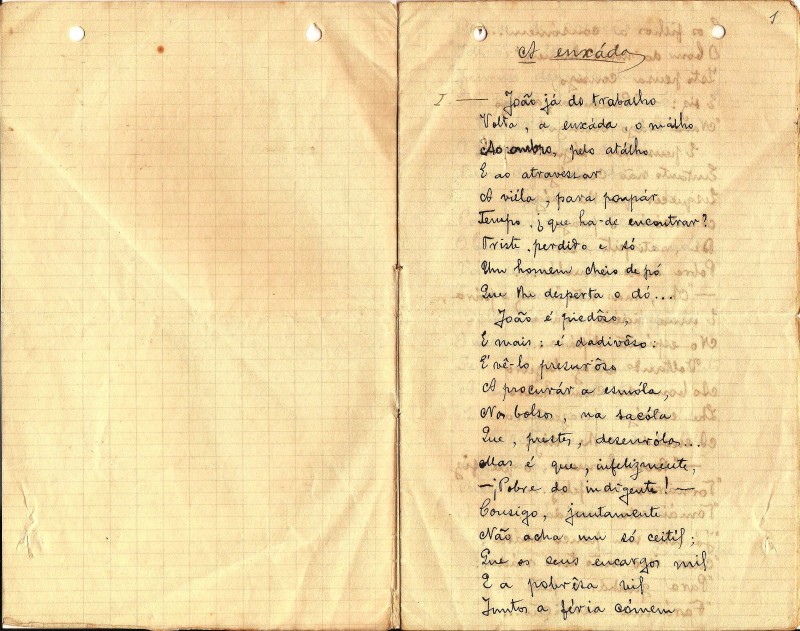 1
A enxáda
I — João já do trabalho
Volta, a enxáda, o málho
Ao ombro, pelo atálho
E ao atravessar
A viéla, para poupár
Tempo, ¡que ha-de encontrar?
Triste, perdido e só
Um homem cheio de pó
Que lhe desperta o dó...
João é piedôso,
E mais: é dadivôso:
E' vê-lo presurôso
A procurár a esmóla,
Nos bolsos, na sacóla
Que, prestes, desenróla...
Mas é que, infelizmente,
—¡Pobre do indigente!—
Comsigo, juntamente
Não acha um só ceitil;
Que os seus encargos mil
E a pobrêsa vil
Juntos a féria cómem